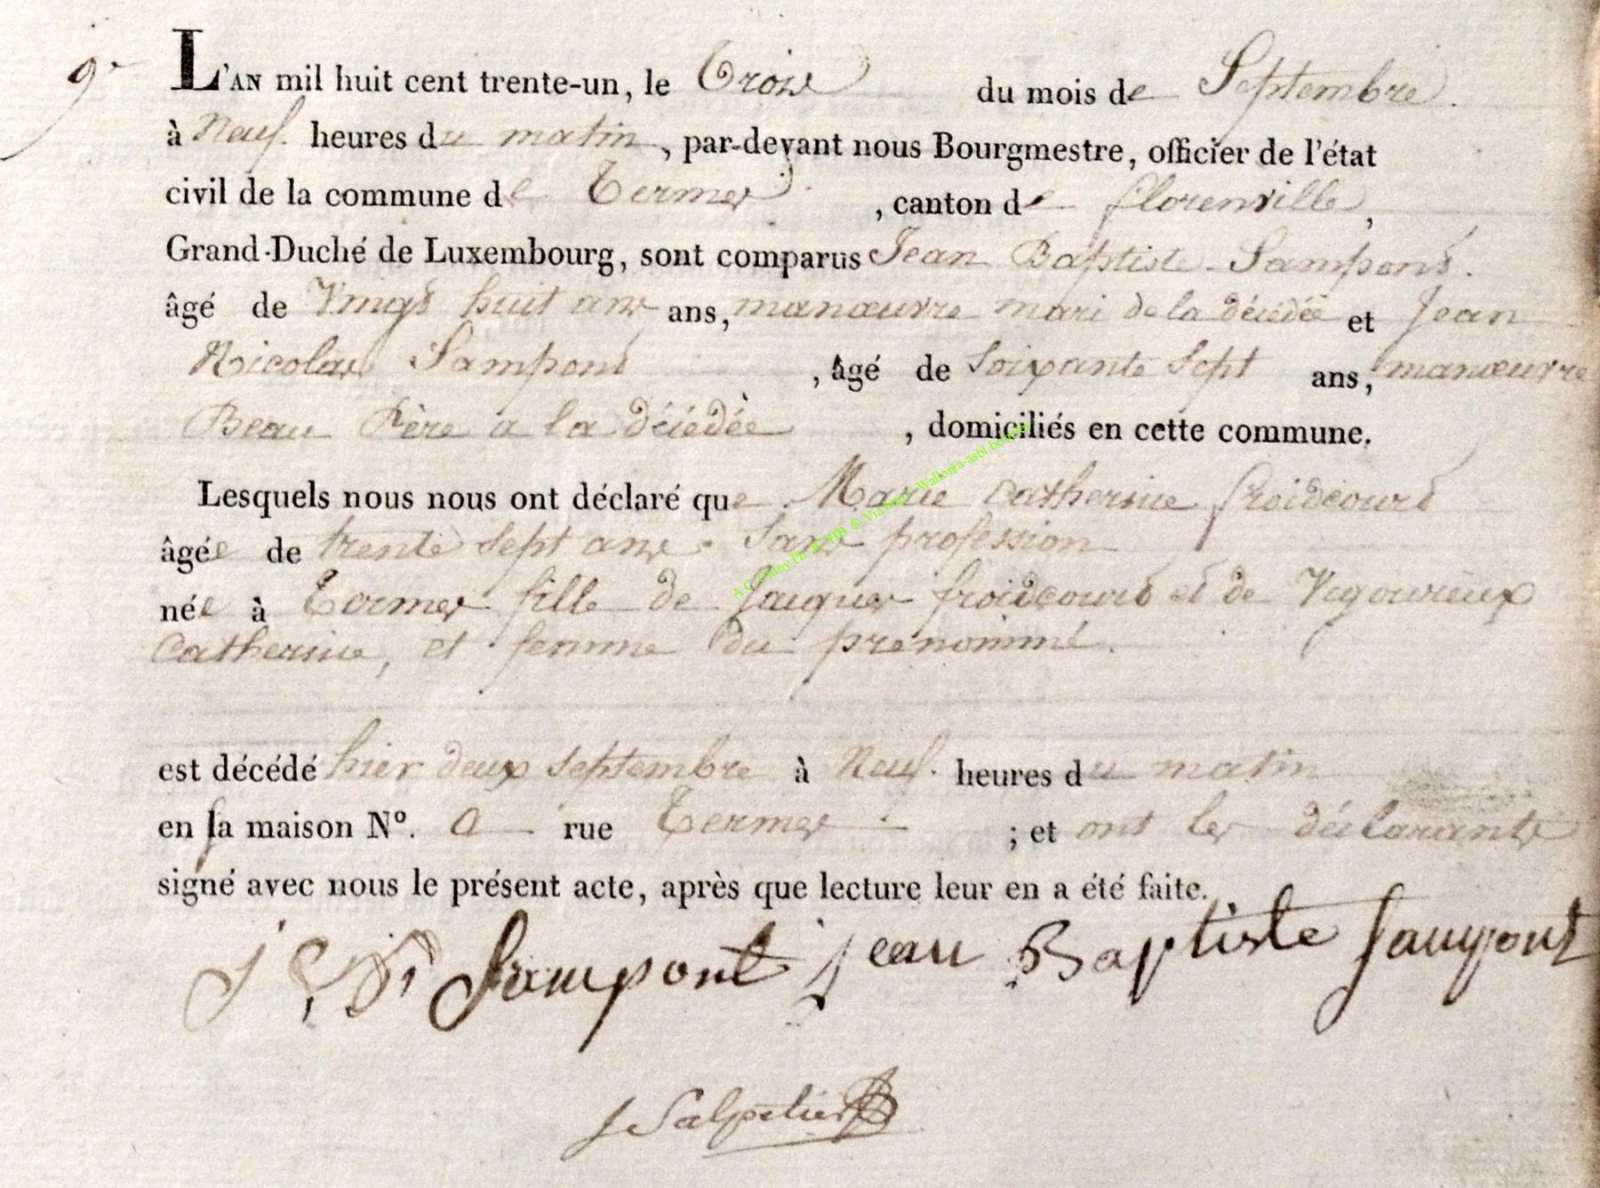 9e
L'AN mil huit cent trente-un, le Trois du mois de Septembre.
à Neuf. heures du matin, par-devant nous Bourgmestre, officier de l'état
civil de la commune de Termes, canton de florenville,
Grand-Duché de Luxembourg, sont comparus Jean Baptiste Sampont.
âgé de Vingt huit ans ans, manœuvre mari de la décédée et Jean
Nicolas Sampont, âgé de Soixante Sept ans, manœuvre
Beau Père a la décédée, domiciliés en cette commune.
Lesquels nous nous ont déclaré que Marie Catherine froidcourt
âgée de trente sept ans. Sans profession
née à Termes fille de Jacques froidcourt et de Vigoureux
Catherine, et femme du prénommé.
est décédé hier deux septembre à Neuf. heures du matin
en sa maison N°. a rue Termes ; et ont les déclarants
signé avec nous le présent acte, après que lecture leur en a été faite.
Sampont jean Baptiste Sampont
J Salpetier